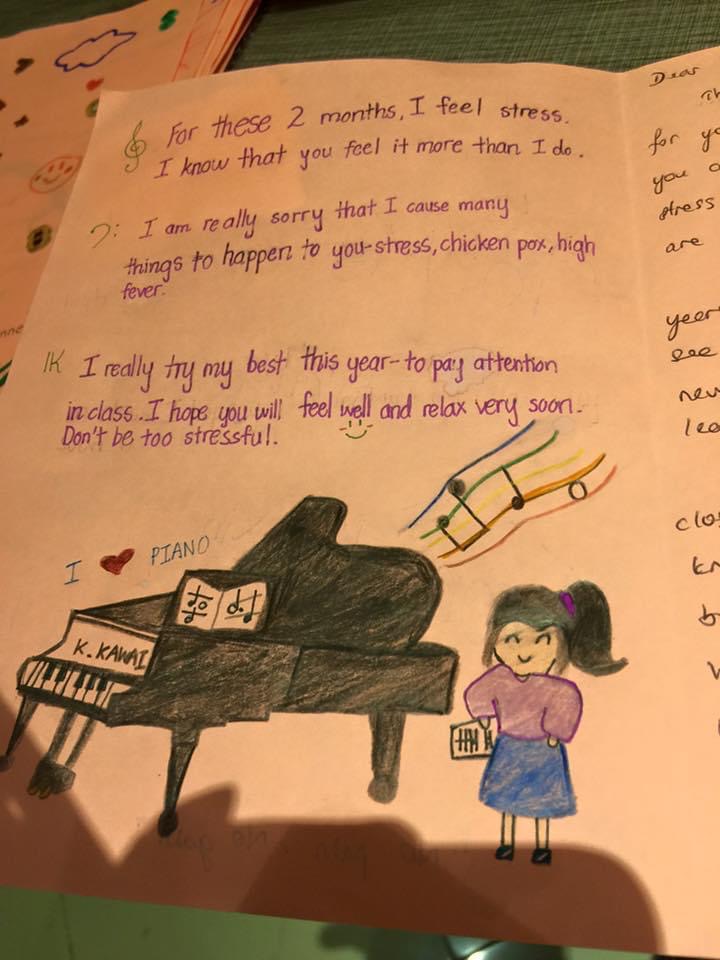 For these 2 months, I feel stress.
I know that you feel it more than I do.
I am really sorry that I cause many
things to happen to you-stress, chicken pox, high
fever.
I really try my best this year-to pay attention
in class. I hope you will feel well and relax very soon.
Don't be too stressful!
I ❤ PIANO
K. KAWAI
Dear
for
you
stress
are